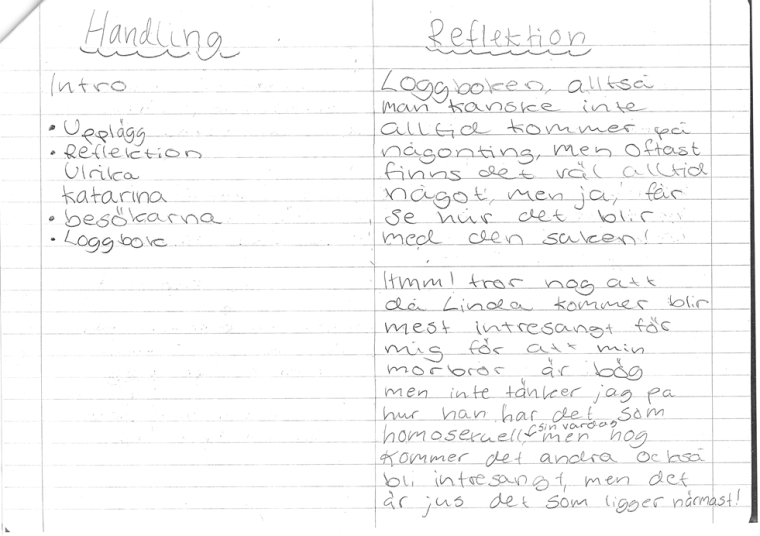 Handling
Intro
• Upplägg
• Reflektion
Ulrika
Katarina
• besökarna
• Loggbok
Reflektion
Loggboken, alltså
man kanske inte
alltid kommer på
någonting, men oftast
finns det väl alltid
något, men ja, får
se hur det blir
med den saken!
Hmm! tror nog att
då Linda kommer blir
mest intresangt för
mig för att min
morbror är bög
men inte tänker jag pa
hur han har det som
homosexuell i sin vardag, men nog
kommer det andra också
bli intresangt, men det
är jus det som ligger närmast!